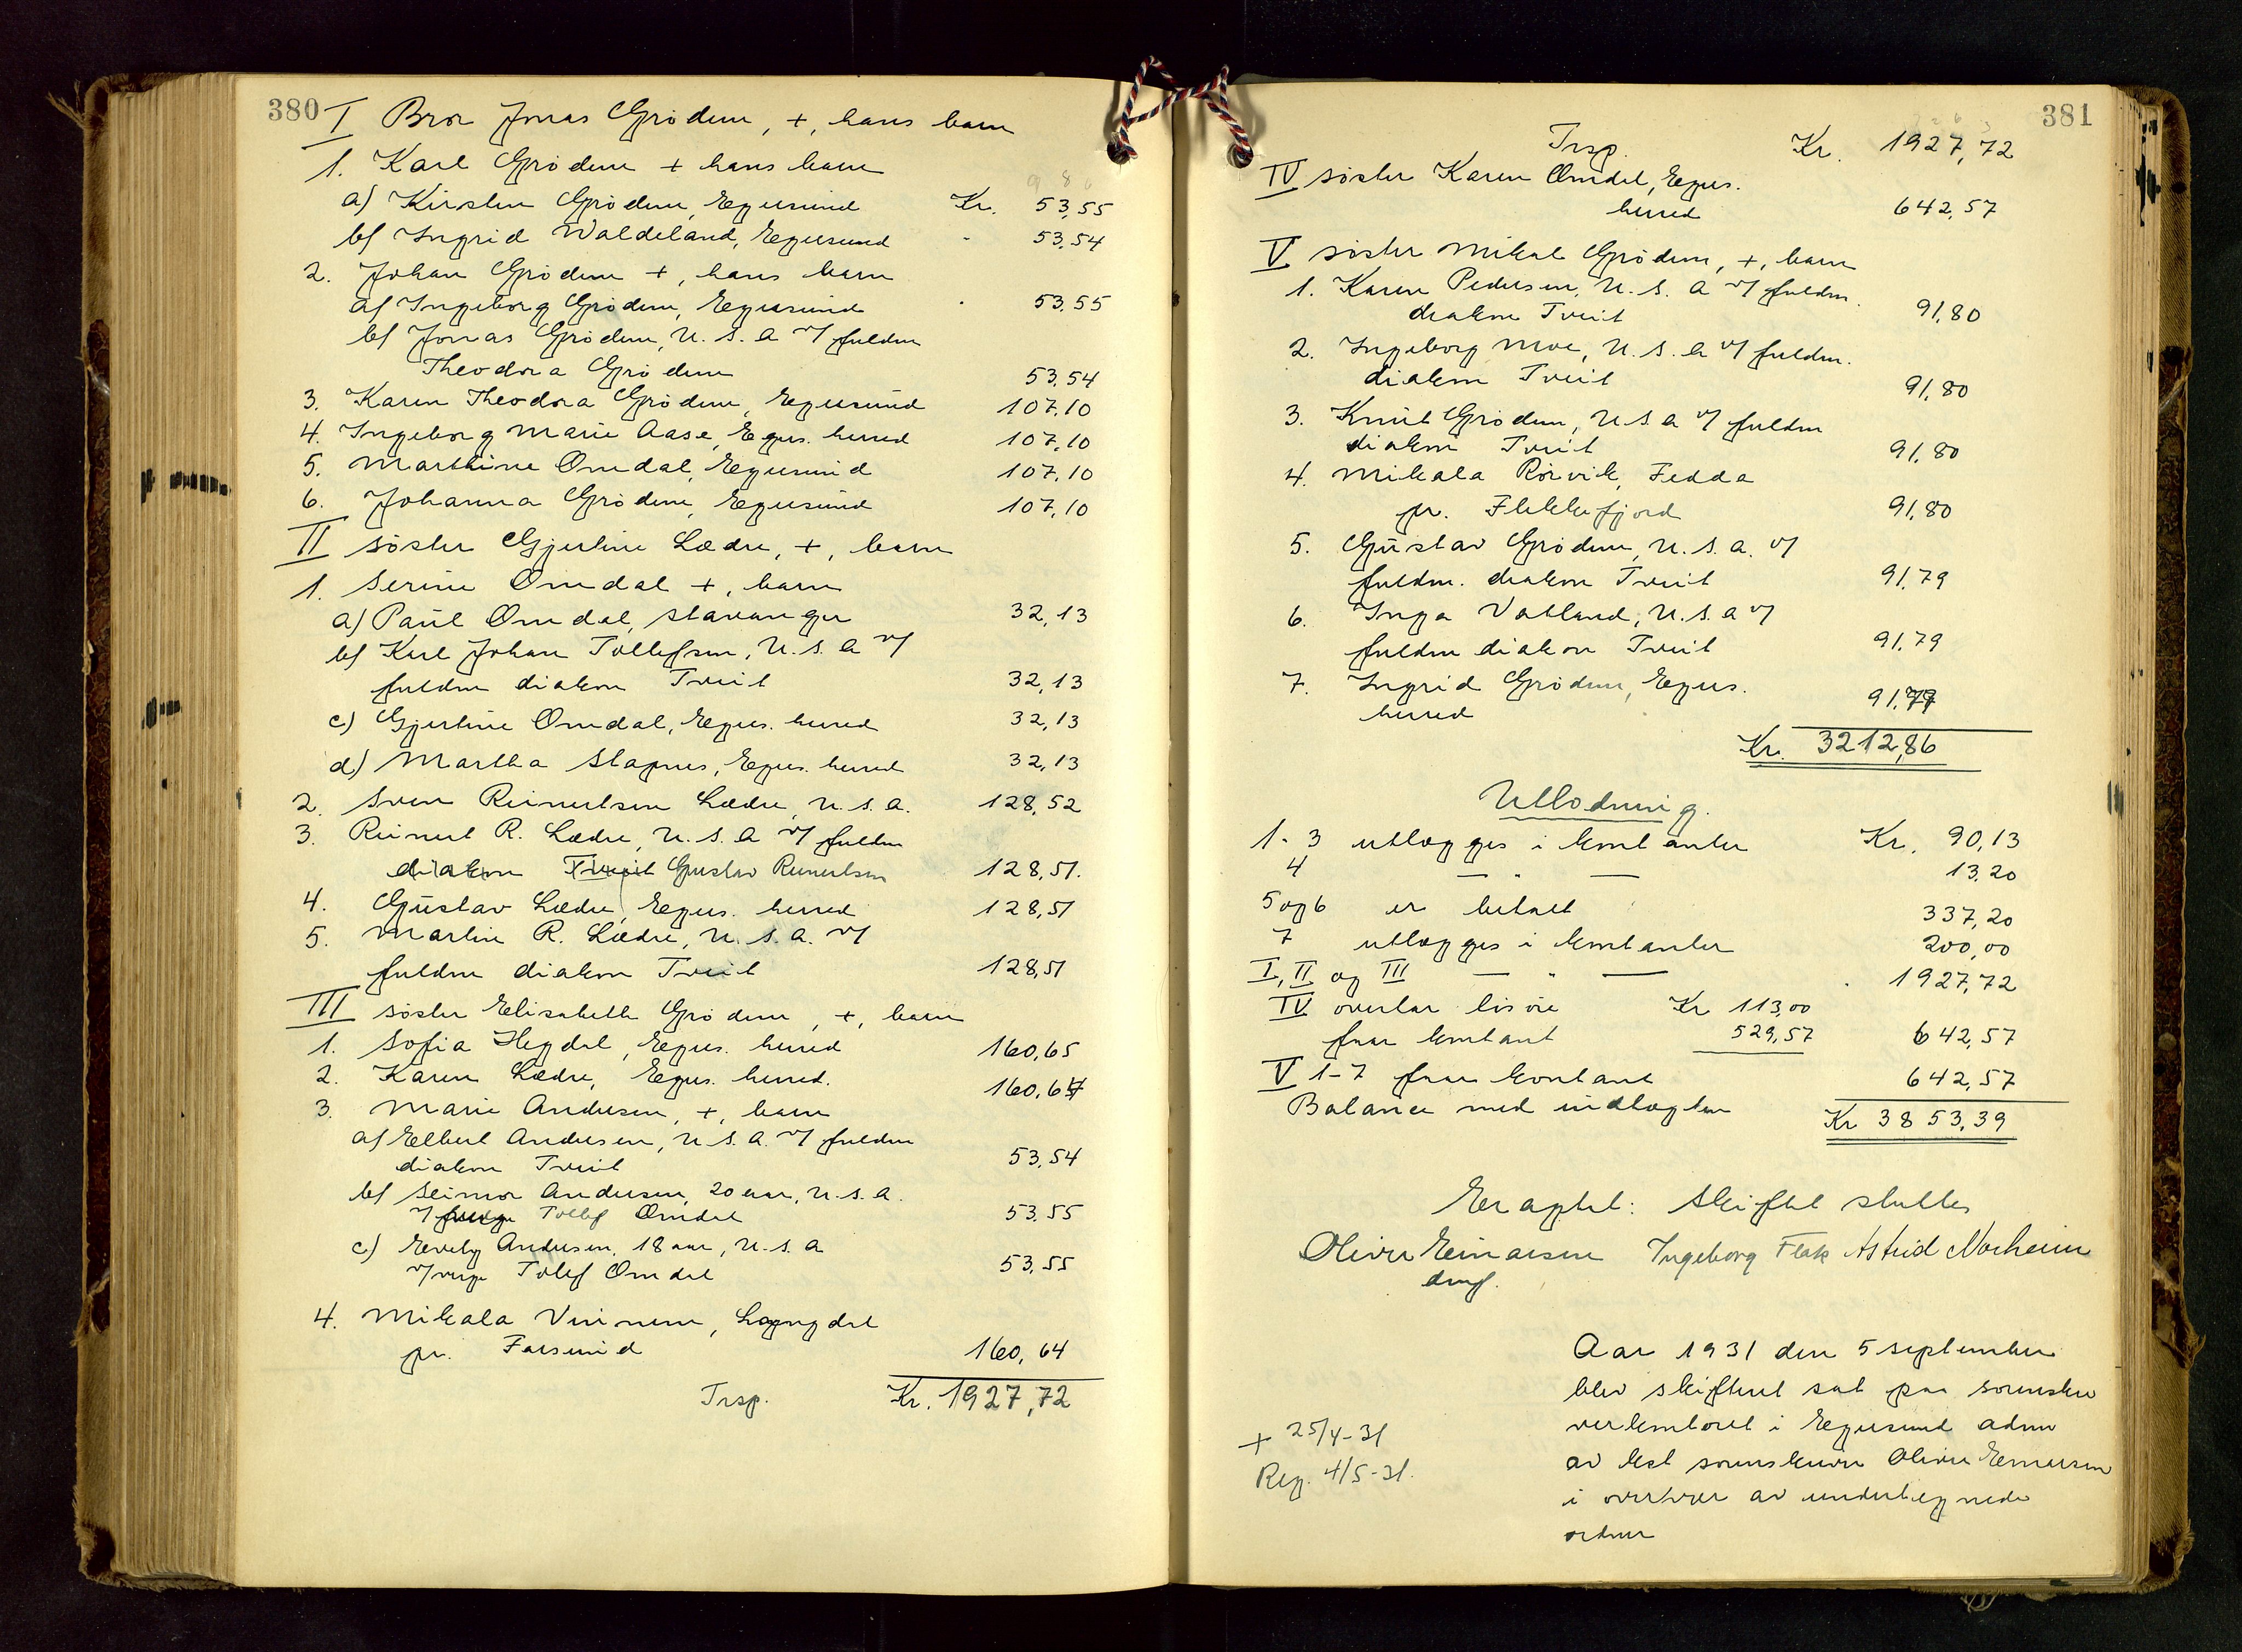 380
I Bror Jonas Grødem, +, hans barn
1. Karl Grødem + hans barn
a) Kirsten Grødem, Egersund Kr. 53,55
b/ Ingrid Waldeland, Egersund - 53,54
2. Johan Grødem +, hans barn
a/ Ingeborg Grødem, Egersund - 53,55
b/ Jonas Grødem, U.S.A v/ fuldm
Theodora Grødem 53,54
3. Karen Theodora Grødem, Egersund 107,10
4. Ingeborg Marie Aase, Egers. herred 107,10
5. Marthine Omdal, Egersund 107,10
6. Johanna Grødem, Egersund 107,10
II søster Gjertine Lædre, +, barn
1. Serine Omdal +, barn
a) Paul Omdal, Stavanger 32,13
b/ Karl Johan Tollefsen, U.S.A v/
fuldm diakon Tveit 32,13
c) Gjertine Omdal, Egers. herred 32,13
d) Martha Stapnes, Egers. herred 32,13
2. Sven Reinertsen Lædre, U.S.A. 128,52
3. Reinert R. Lædre, U.S.A v/ fuldm
diakon Tveit Gustav Reinertsen 128,51.
4. Gustav Lædre, Egers. herred 128,51
5. Martin R. Lædre, U.S.A. v/
fuldm diakon Tveit 128,51
III søster Elisabeth Grødem, +, barn
1. Sofia Hegdal, Egers. herred 160,65
2. Karen Lædre, Egers. herred. 160,64
3. Marie Andersen, +, barn
a/ Elbert Andersen, U.S.A. v/ fuldm
diakon Tveit 53,54
b/ Seimor Andersen, 20 aar, U.S.A.
v/ verge Tollef Omdal 53,55
c) Evely Andersen, 18 aar, U.S.A
v/ verge Tollef Omdal 53,55
4. Mikala Vininem, Lyngdal
pr. Farsund 160,64
Trsp. Kr. 1927,72
381
Trsp. Kr. 1927,72
IV søster Karen Omdal, Egers.
herred 642,57
V søster Mikal Grødem, +, barn
1. Karen Pedersen, U.S.A v/ fuldm.
diakon Tveit 91,80
2. Ingeborg Moe, U.S.A v/ fuldm.
diakon Tveit 91,80
3. Knut Grødem, U.S.A v/ fuldm
diakon Tveit 91,80
4. Mikala Rørvik, Fedda
pr. Flekkefjord 91,80
5. Gustav Grødem, U.S.A. v/
fuldm. diakon Tveit 91,79
6. Inga Vatland, U.S.A v/
fuldm diakon Tveit 91,79
7. Ingrid Grødem, Egers.
herred 91,79
Kr. 3212,86
Utlodning.
1-3 utlægges i kontanter Kr. 90,13
4 — " — 13,20
5 og 6 er betalt 337,20
7 utlægges i kontanter 200,00
I, II og III — " — 1927,72
IV overtar løsøre Kr 113,00
faar kontant 529,57 642,57
V 1-7 faar kontant 642,57
Balance med indtægten Kr 3853,39
Eragtet: Skiftet sluttes
Oliver Einarsen Ingeborg Flak Astrid Norheim
dmf.
+ 25/4-31
Reg. 4/5-31.
Aar 1931 den 5 september
blev skifteret sat paa sorenskri
verkontoret i Egersund adm
av kst sorenskriver Oliver Einarsen
i overvær av undertegnede
vidner